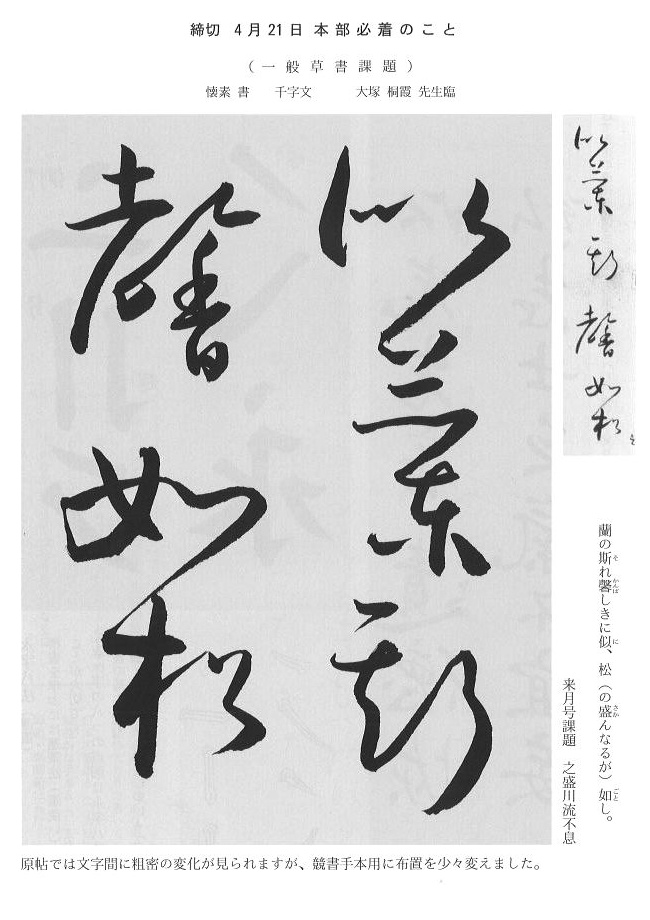 締切 4月21日 本部必着のこと
（一般草書課題）
懐素 書 千字文 大塚 桐霞 先生臨
似蘭斯
馨如松
似蘭斯馨如松
蘭の斯れ馨しきに似、松（の盛んなるが）如し。
そ かんば に さか ごと
来月号課題 之盛川流不息
原帖では文字間に粗密の変化が見られますが、競書手本用に布置を少々変えました。